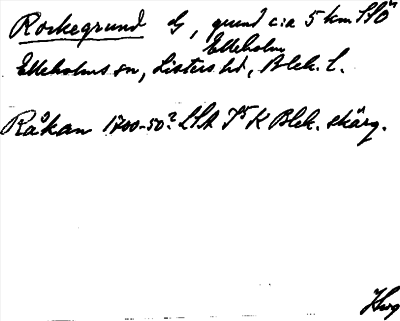 Rockegrund G, grund c:a 5 km SSO
Elleholm
Elleholms sn, Listers hd, Blek. l.
Råkan 1700-50? LSA K Blek. skärg.
Hwg